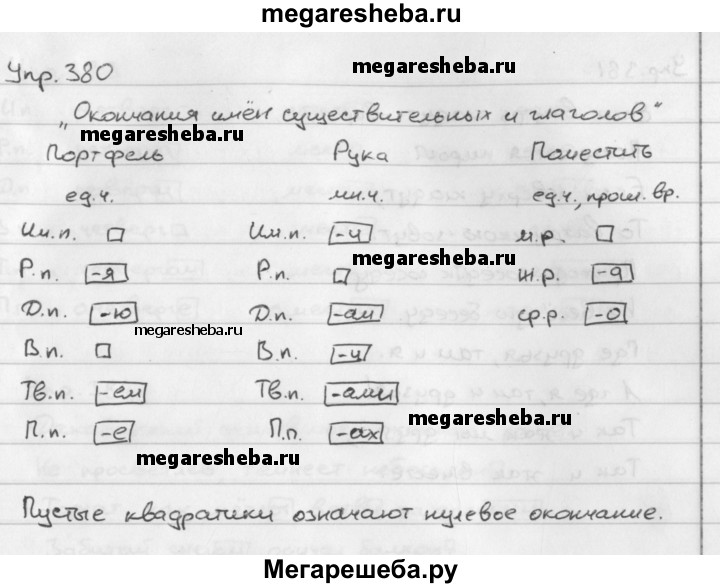 megaresheba.ru
Упр. 380
megaresheba.ru
„Окончания имён существительных и глаголов"
megaresheba.ru
Портфель Рука Поместить
ед.ч. мн.ч. ед.ч., прош. вр.
Им.п. Им.п. -и м.р.
megaresheba.ru
Р.п. -я Р.п. ж.р. -а
Д.п. -ю Д.п. -ам ср.р. -о
megaresheba.ru
В.п. В.п. -и
Тв.п. -ем Тв.п. -ами
megaresheba.ru
П.п. -е П.п. -ах
megaresheba.ru
Пустые квадратики означают нулевое окончание.
Мегарешеба.ру